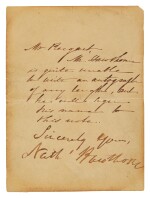 Mr Hogart,
Mr Hawthorne
is quite unable
to write an autograph
of any length, but
he will sign
his name to
this note.
Sincerely Yours,
Nath' Hawthorne